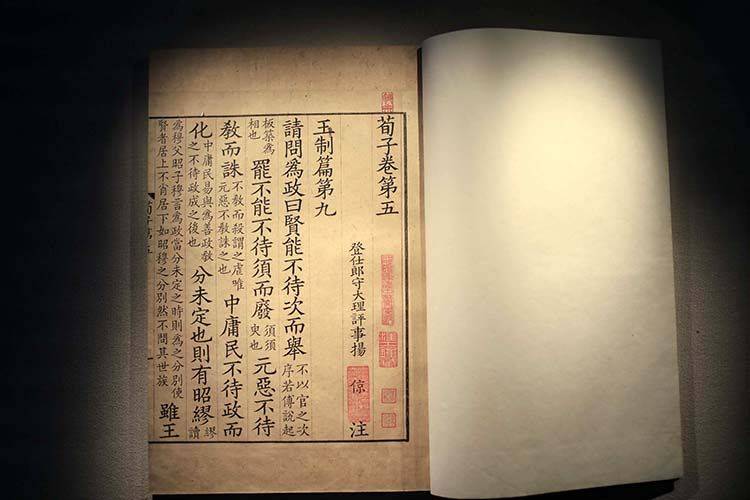 荀子卷第五
登仕郎守大理評事揚 倞 注
王制篇第九
請問爲政曰賢能不待次而舉不以官之次序若傅說起
板築爲相也罷不能不待須而廢須須臾也元惡不待
教而誅不教而殺謂之虐唯元惡不教誅之也中庸民不待政而
化中庸民易與爲善政教之不待政成之後也分未定也則有昭繆繆讀
爲穆父昭子穆言爲政當分未定之時則爲之分別使賢者居上不肖居下如昭穆之分別然不問其世族雖王